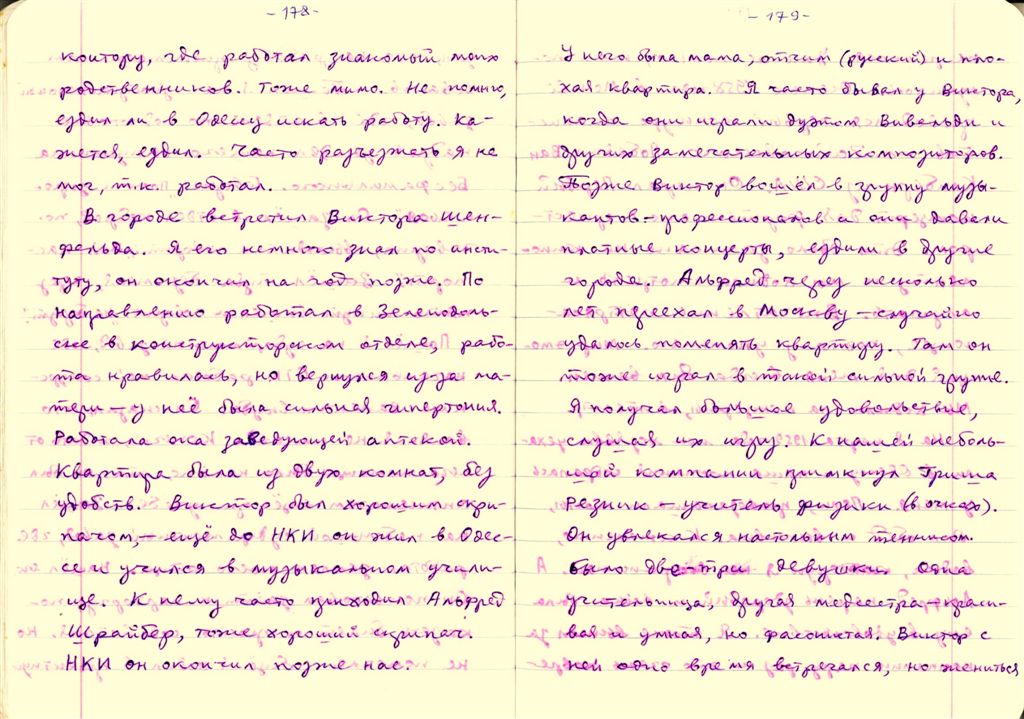 -178-
контору, где работал знакомый моих
родственников. Тоже мимо. Не помню,
ездил ли в Одессу искать работу. Ка-
жется, ездил. Часто разъезжать я не
мог, т.к. работал.
В городе встретил Виктора Шен-
фельда. Я его немного знал по инсти-
туту, он окончил на год позже. По
направлению работал в Зеленодоль-
ске в конструкторском отделе, рабо-
та нравилась, но вернулся из-за ма-
тери – у неё была сильная гипертония.
Работала она заведующей аптекой.
Квартира была из двух комнат, без
удобств. Виктор был хорошим скри-
пачом, – ещё до НКИ он жил в Одес-
се и учился в музыкальном учили-
ще. К нему часто приходил Альфред
Шрайбер, тоже хороший скрипач.
НКИ он окончил позже нас.
-179-
У него была мама, отчим (русский) и пло-
хая квартира. Я часто бывал у Виктора,
когда они играли дуэтом Вивальди и
других замечательных композиторов.
Позже Виктор вошёл в группу музы-
кантов-профессионалов и они давали
платные концерты, ездили в другие
города. Альфред через несколько
лет переехал в Москву – случайно
удалось поменять квартиру. Там он
тоже играл в такой сильной группе.
Я получал большое удовольствие,
слушая их игру. К нашей неболь-
шой компании примкнул Гриша
Резник – учитель физики (в очках).
Он увлекался настольным теннисом.
Было две-три девушки. Одна
учительница, другая медсестра – краси-
вая и умная, но фасонистая. Виктор с
ней одно время встречался, но жениться